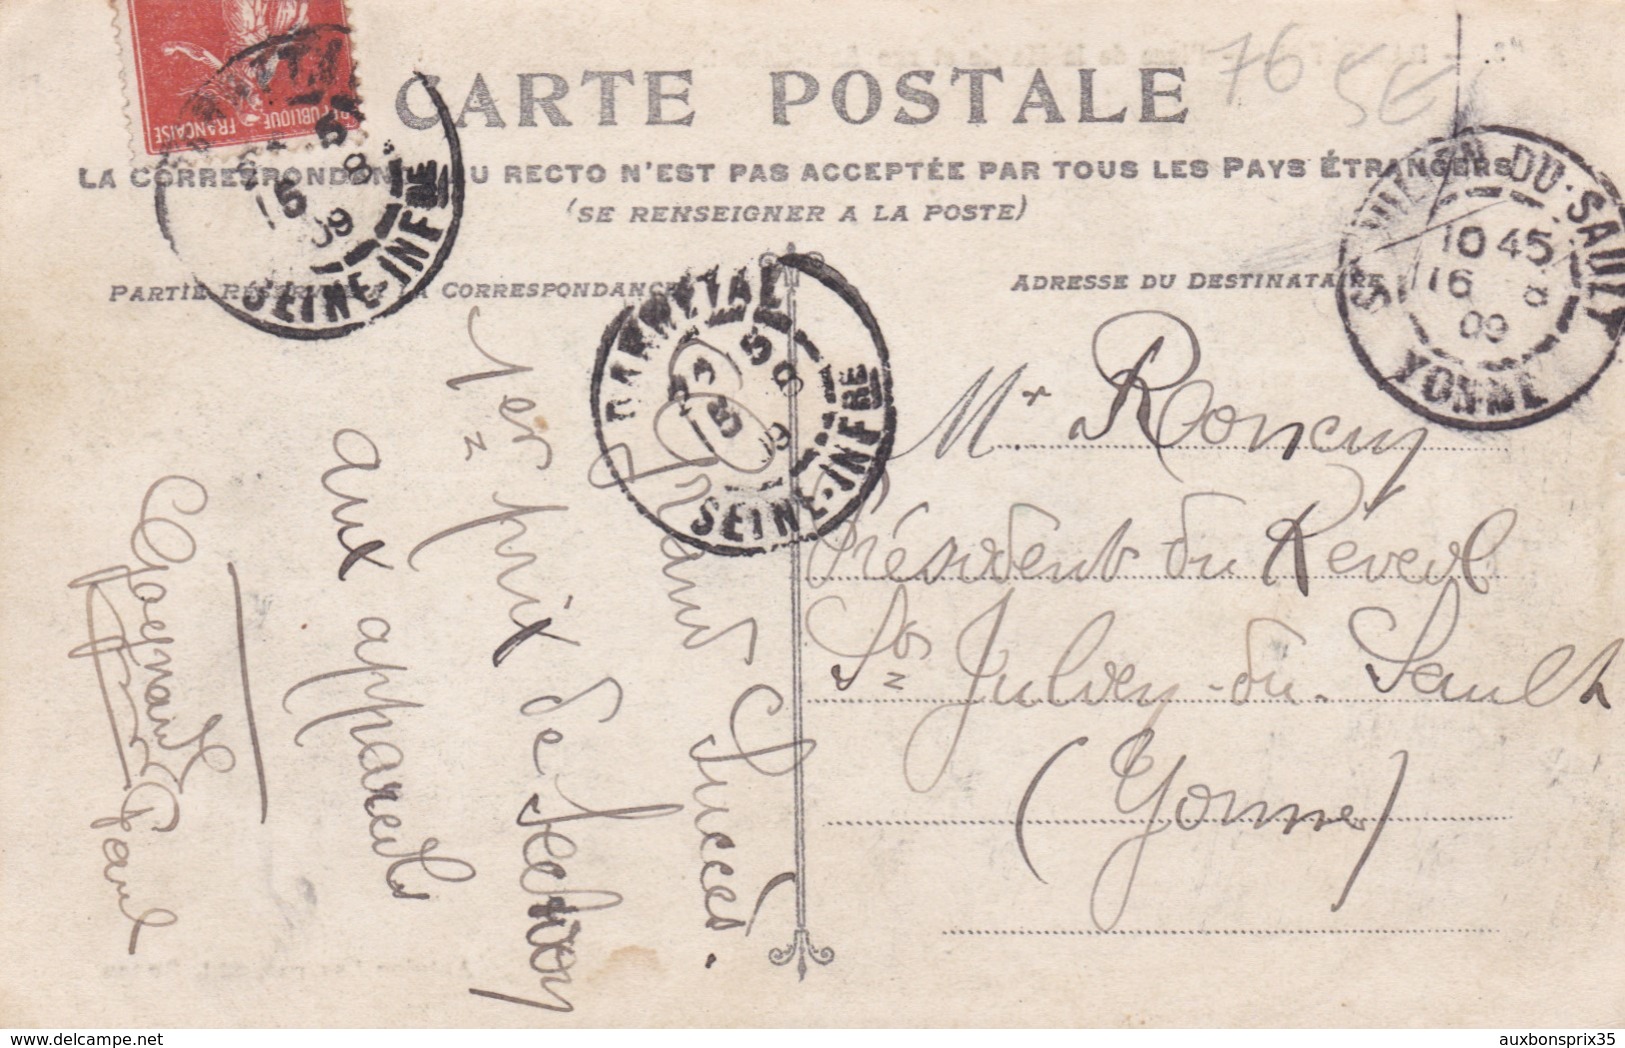 76
SE
CARTE POSTALE
LA CORRESPONDANCE AU RECTO N'EST PAS ACCEPTÉE PAR TOUS LES PAYS ÉTRANGERS
(SE RENSEIGNER A LA POSTE)
PARTIE RÉSERVÉE A LA CORRESPONDANCE
ADRESSE DU DESTINATAIRE
REPUBLIQUE FRANÇAISE
DARNETAL
5 8
15
09
SEINE-INFRE
DARNETAL
5 8
15
09
SEINE-INFRE
ST JULIEN-DU-SAULT
10 45
16 8
09
YONNE
Grand Succès.
1er prix de Section
aux appareils
Paul
Mr. Roncuy
Président du Réveil
St Julien-du-Sault
(Yonne)
auxbonsprix35